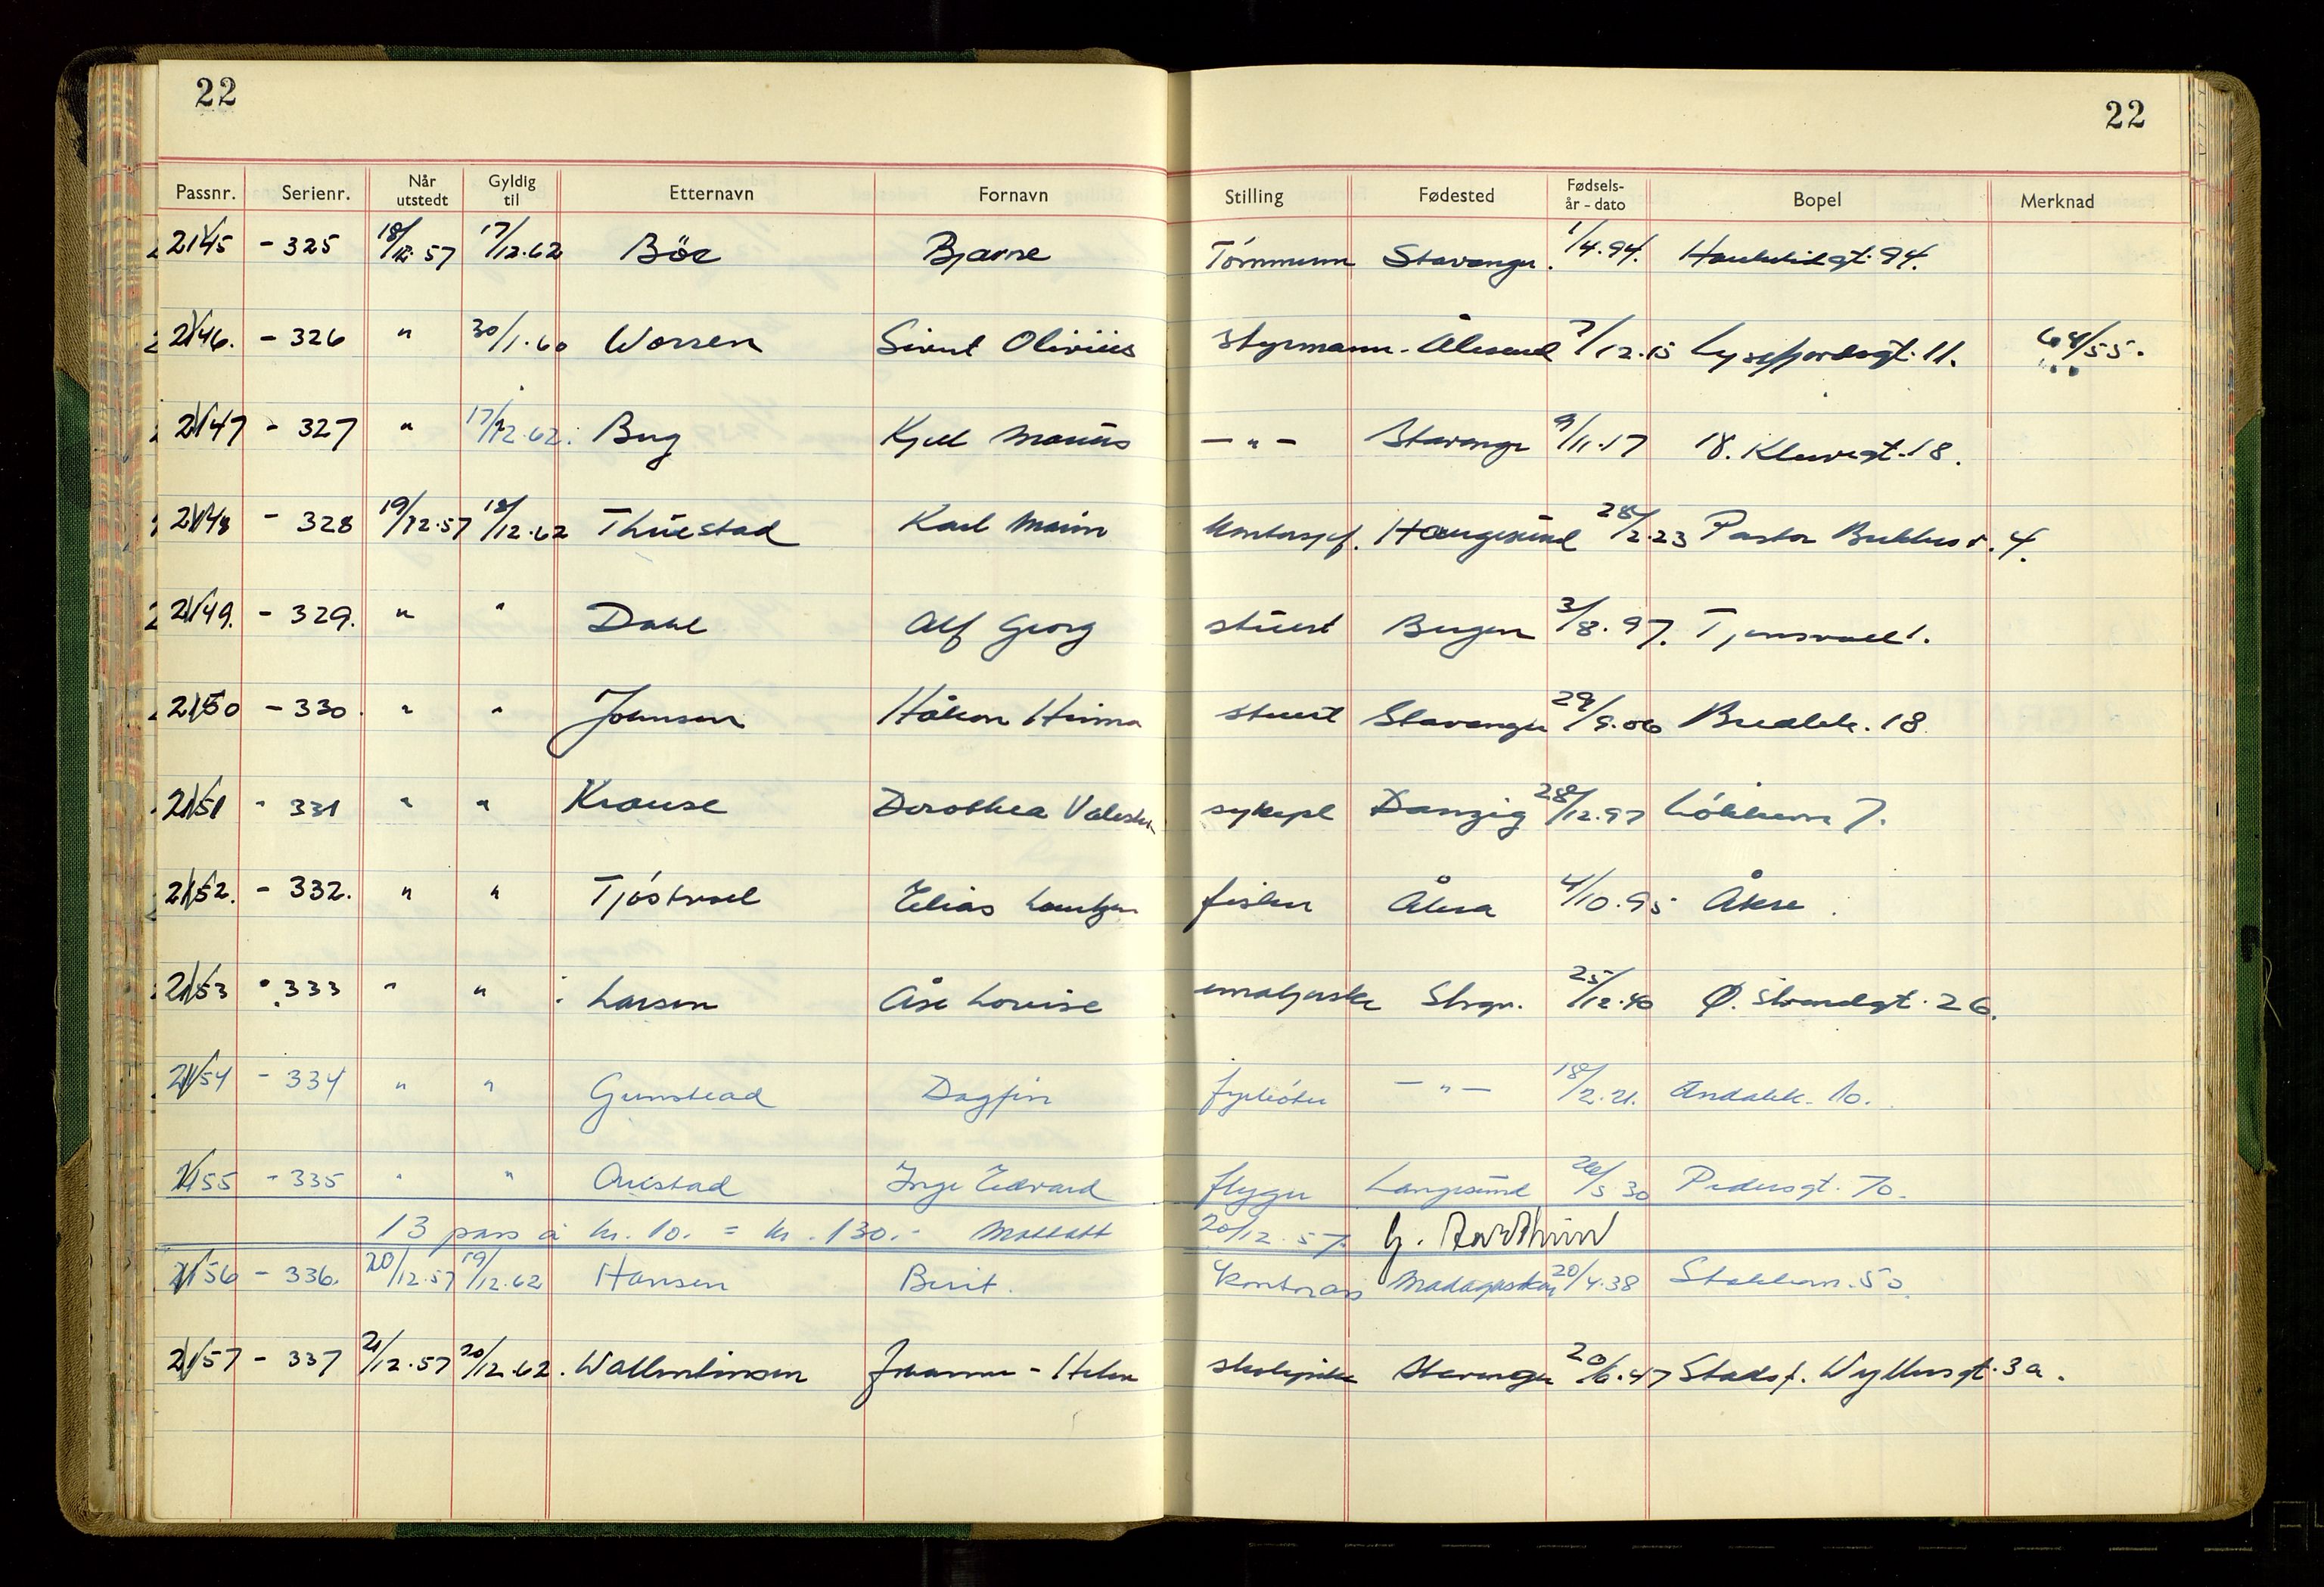 22 22
Passnr. Serienr. Når utstedt Gyldig til Etternavn Fornavn Stilling Fødested Fødsels- år - dato Bopel Merknad
2145 - 325 18/12.57 17/12.62 Böe Bjarne Tömmerm Stavanger. 1/4.94. Haukeligt. 94.
2146. - 326 " 30/1.60 Worren Sivert Olivius styrmann. Ålesund 7/12.15 Lysefjordsgt. 11. 68/55.
2147 - 327 " 17/12.62. Berg Kjell Marius — " — Stavanger 9/11.17 18.
2148 - 328 19/12.57 18/12.62 Thuestad Karl Marin kontorsjef. Haugesund 28/2.23 Pastor 4.
2149. - 329. " " Dahl Alf Georg stuert Bergen 3/8.97. Tjensvoll 1.
2150 - 330. " " Johnsen Håkon stuert Stavanger 29/9.06 Bredbk. 18
2151 - 331 " " Krause Dorothea sykepl Danzig 28/12.97 Lökkevn 7.
2152. - 332. " " Tjöstvoll Elias Lauritzen fisker Åkra 4/10.95 Åkra.
2153 - 333 " " Larsen Åse Louise emaljerske Stvgr. 25/12.40 Ø. Strandgt. 26.
2154 - 334 " " Grimstead Dagfin fyrböter — " — 18/2.21. Andabk. 10.
2155 - 335 " " Austad Inge Edvard flyger Langesund 26/5.30 Pedersgt. 70.
13 pass à kr. 10. = kr. 130.- Mottatt 20/12.57.
2156 - 336. 20/12.57 19/12.62 Hansen Berit. kontorass Madagaskar 20/4.38 Stokkavn. 50.
2157 - 337 21/12.57 20/12.62. Wallentinsen Johanne - Helen skolepike Stavanger 20/6.47 Stadsf. Wyllersgt. 3a.